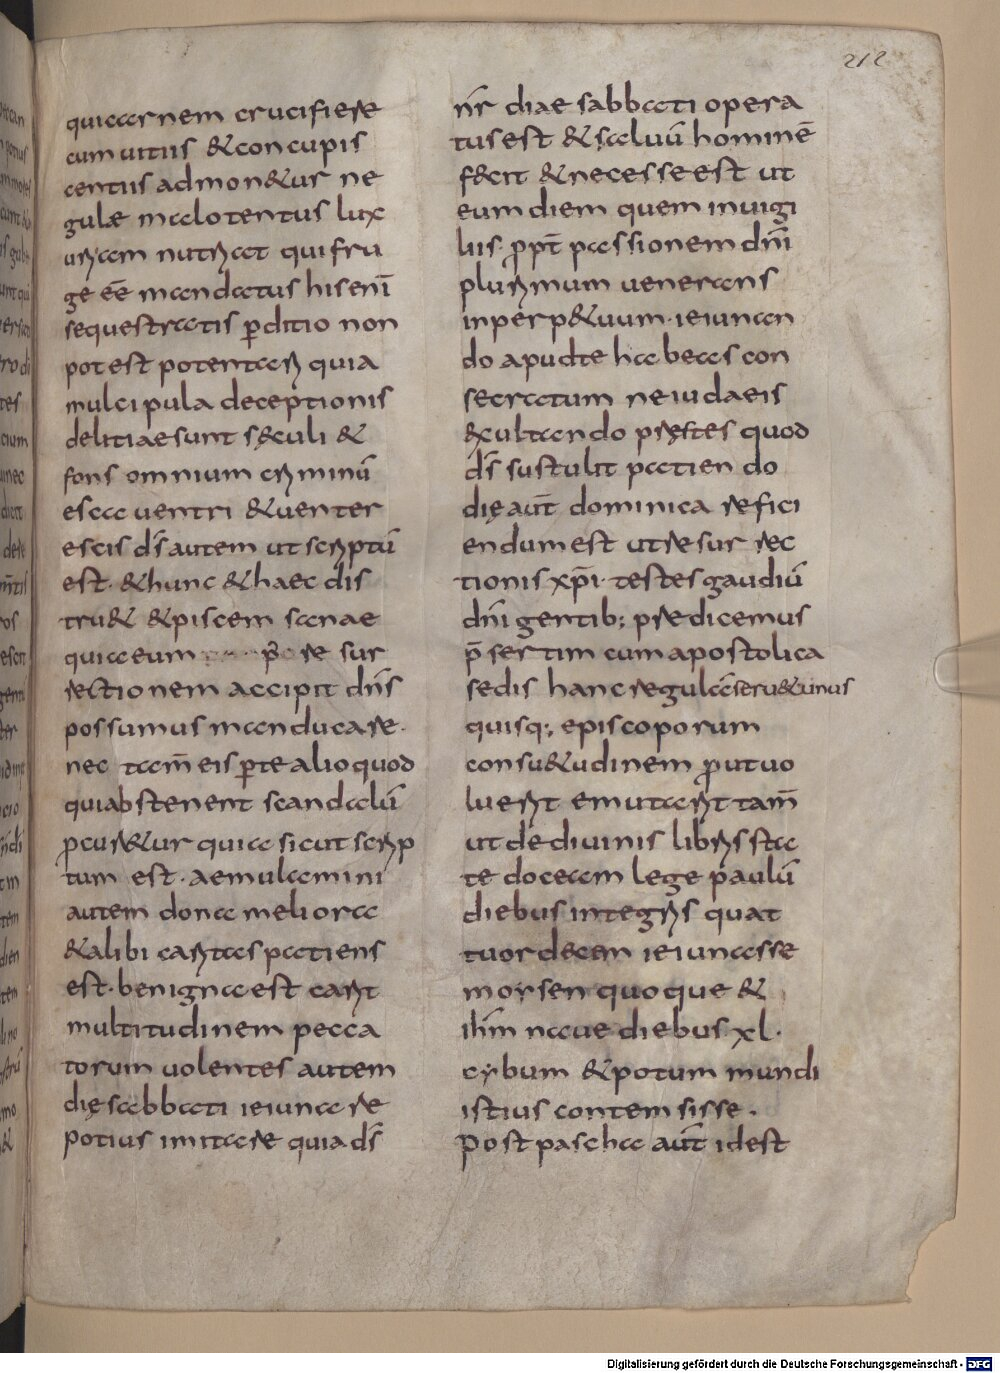 212
quicarnem crucifiere
cum uitiis & concupis
centiis admon&ur ne
gulae malo tentus lux
uriam nutriat qui fru
ge eē mandatus his enī
sequestratis p̄ditio non
potest potentari quia
mulcipula deceptionis
delitiae sunt sęculi &
fons omnium criminū
escae uentri & uenter
escis ds̄ autem ut scriptū
est · & hunc & haec dis
tru& & piscem sanae
quia eum re sur
rectionem accipit dn̄s
possumus manducare ·
nec tam̄ eis p̄ te alio quod
qui abstenent scandalū
p̄cur&ur quia sicut scrip
tum est · aemulamini
autem dona meliora
& alibi caritas patiens
est · benigna est carit
multitudinem pecca
torum uolentes autem
dię sabbati ieiunare
potius imitare quia ds̄
nr̄ diae sabbati opera
tus est & saluū hominē
fecit & necesse est ut
eum diem quem inuigi
liis · pp̄t passionem dn̄i
plurimum uenerans
in perp&uum · ieiunan
do apud te habeas con
secratum ne iudaeis
exultando prestes quod
ds̄ sustulit patien do
dię aūt dominica refici
endum est ut resur rec
tionis xp̄i · testes gaudiū
dn̄i gentib; predicemus
p̄sertim cum apostolica
sedis hanc regulā seru& unus
quisq; episcoporum
consu&udinem prout uo
luerit emutarit tam̄
ut de diuinis libris sta
te doceam lege paulū
diebus integris quat
tuor decem ieiunasse
morsen quoque &
ih̄m naue diebus xl ·
cybum & potum mundi
istius contemsisse ·
Post pascha aūt idest
Digitalisierung gefördert durch die Deutsche Forschungsgemeinschaft - DFG